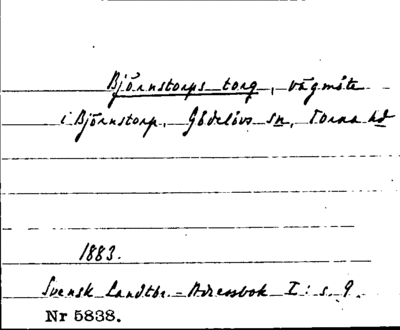 Björnstorps torg, vägmöte
i Björnstorp, Gödelövs sn, Torna hd
1883.
Svensk Landtbr.-Adressbok I: s. 9.
Nr 5838.